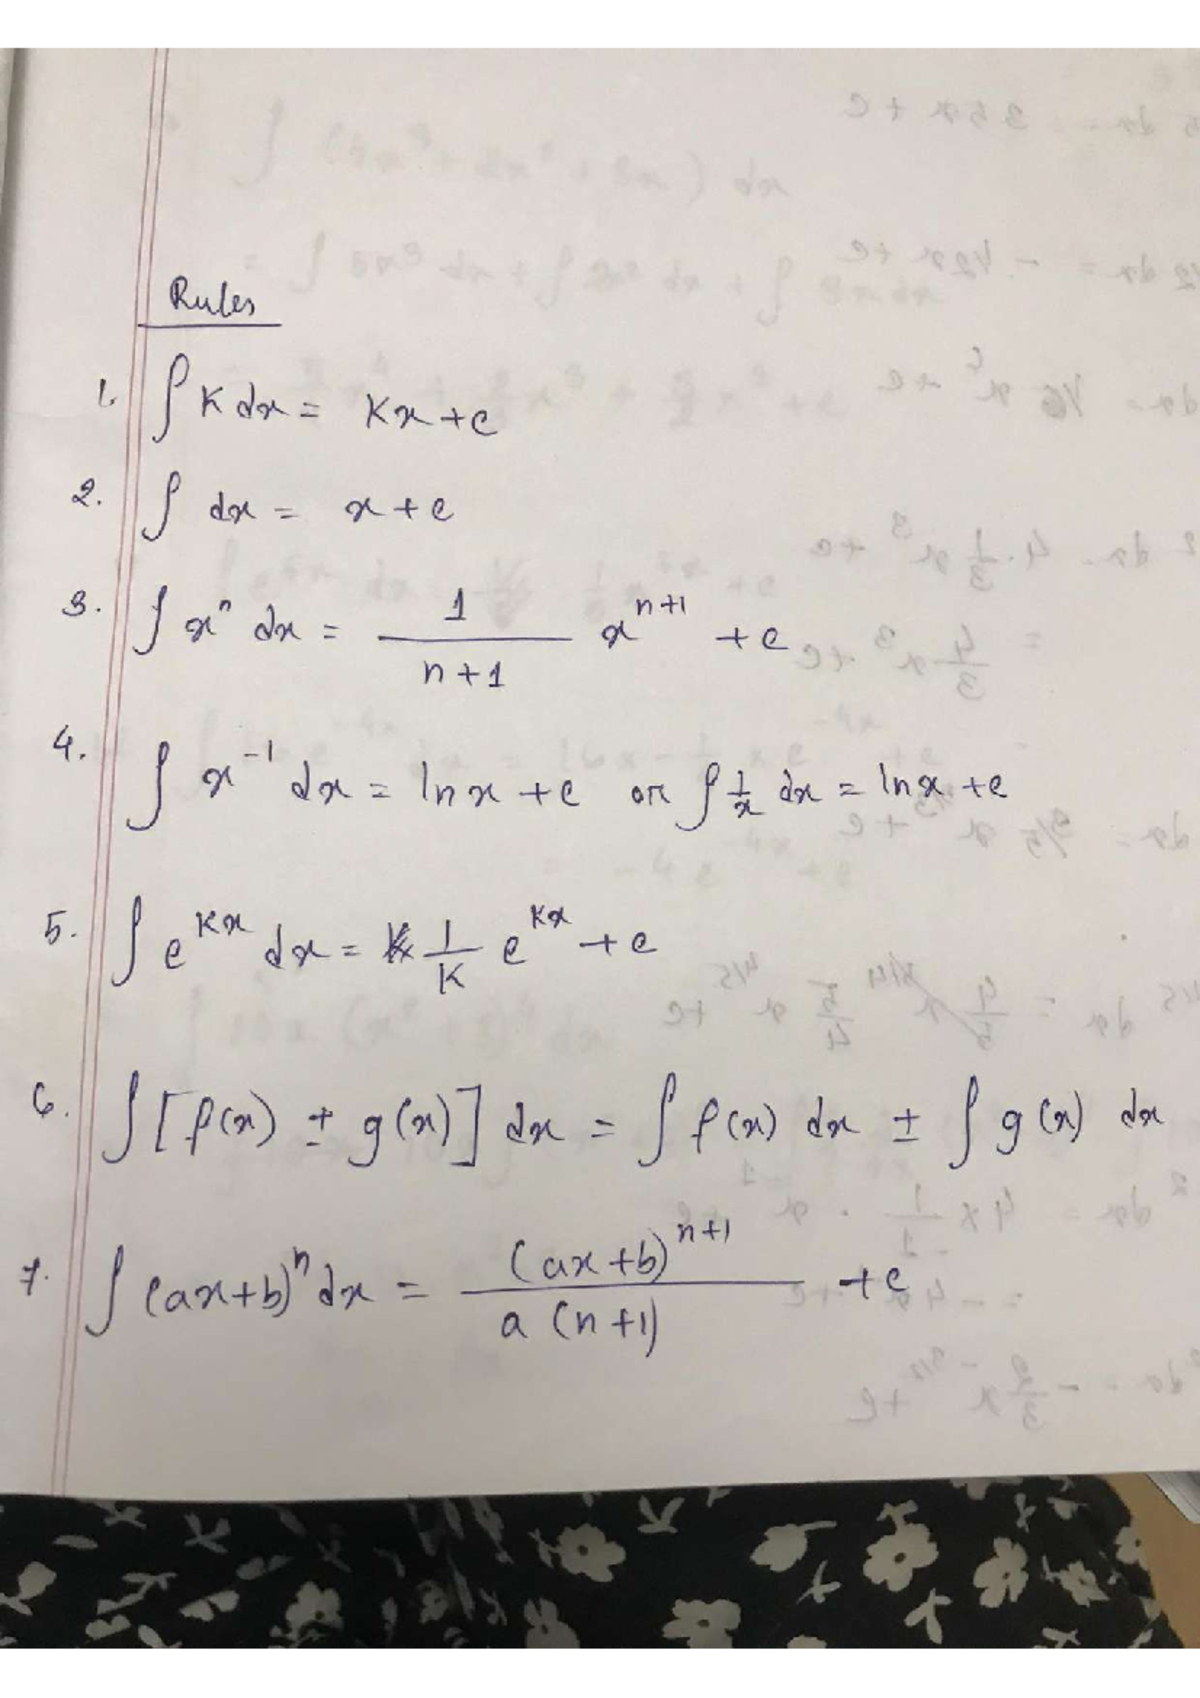 Rules
1. ∫ K dx = Kx + c
2. ∫ dx = x + c
3. ∫ xⁿ dx = 1/(n+1) xⁿ⁺¹ + c
4. ∫ x⁻¹ dx = ln x + c or ∫ 1/x dx = ln x + c
5. ∫ e^(Kx) dx = 1/K e^(Kx) + c
6. ∫ [f(x) ± g(x)] dx = ∫ f(x) dx ± ∫ g(x) dx
7. ∫ (ax+b)ⁿ dx = (ax+b)ⁿ⁺¹ / a(n+1) + c